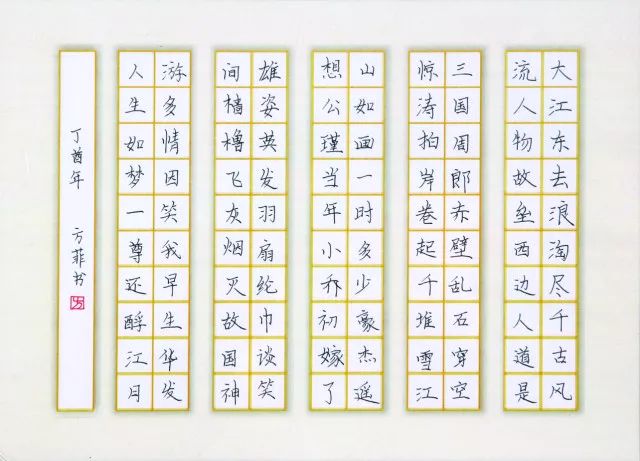 大江东去浪淘尽千古风
流人物故垒西边人道是
三国周郎赤壁乱石穿空
惊涛拍岸卷起千堆雪江
山如画一时多少豪杰遥
想公瑾当年小乔初嫁了
雄姿英发羽扇纶巾谈笑
间樯橹飞灰烟灭故国神
游多情因笑我早生华发
人生如梦一尊还酹江月
丁酉年 方菲书